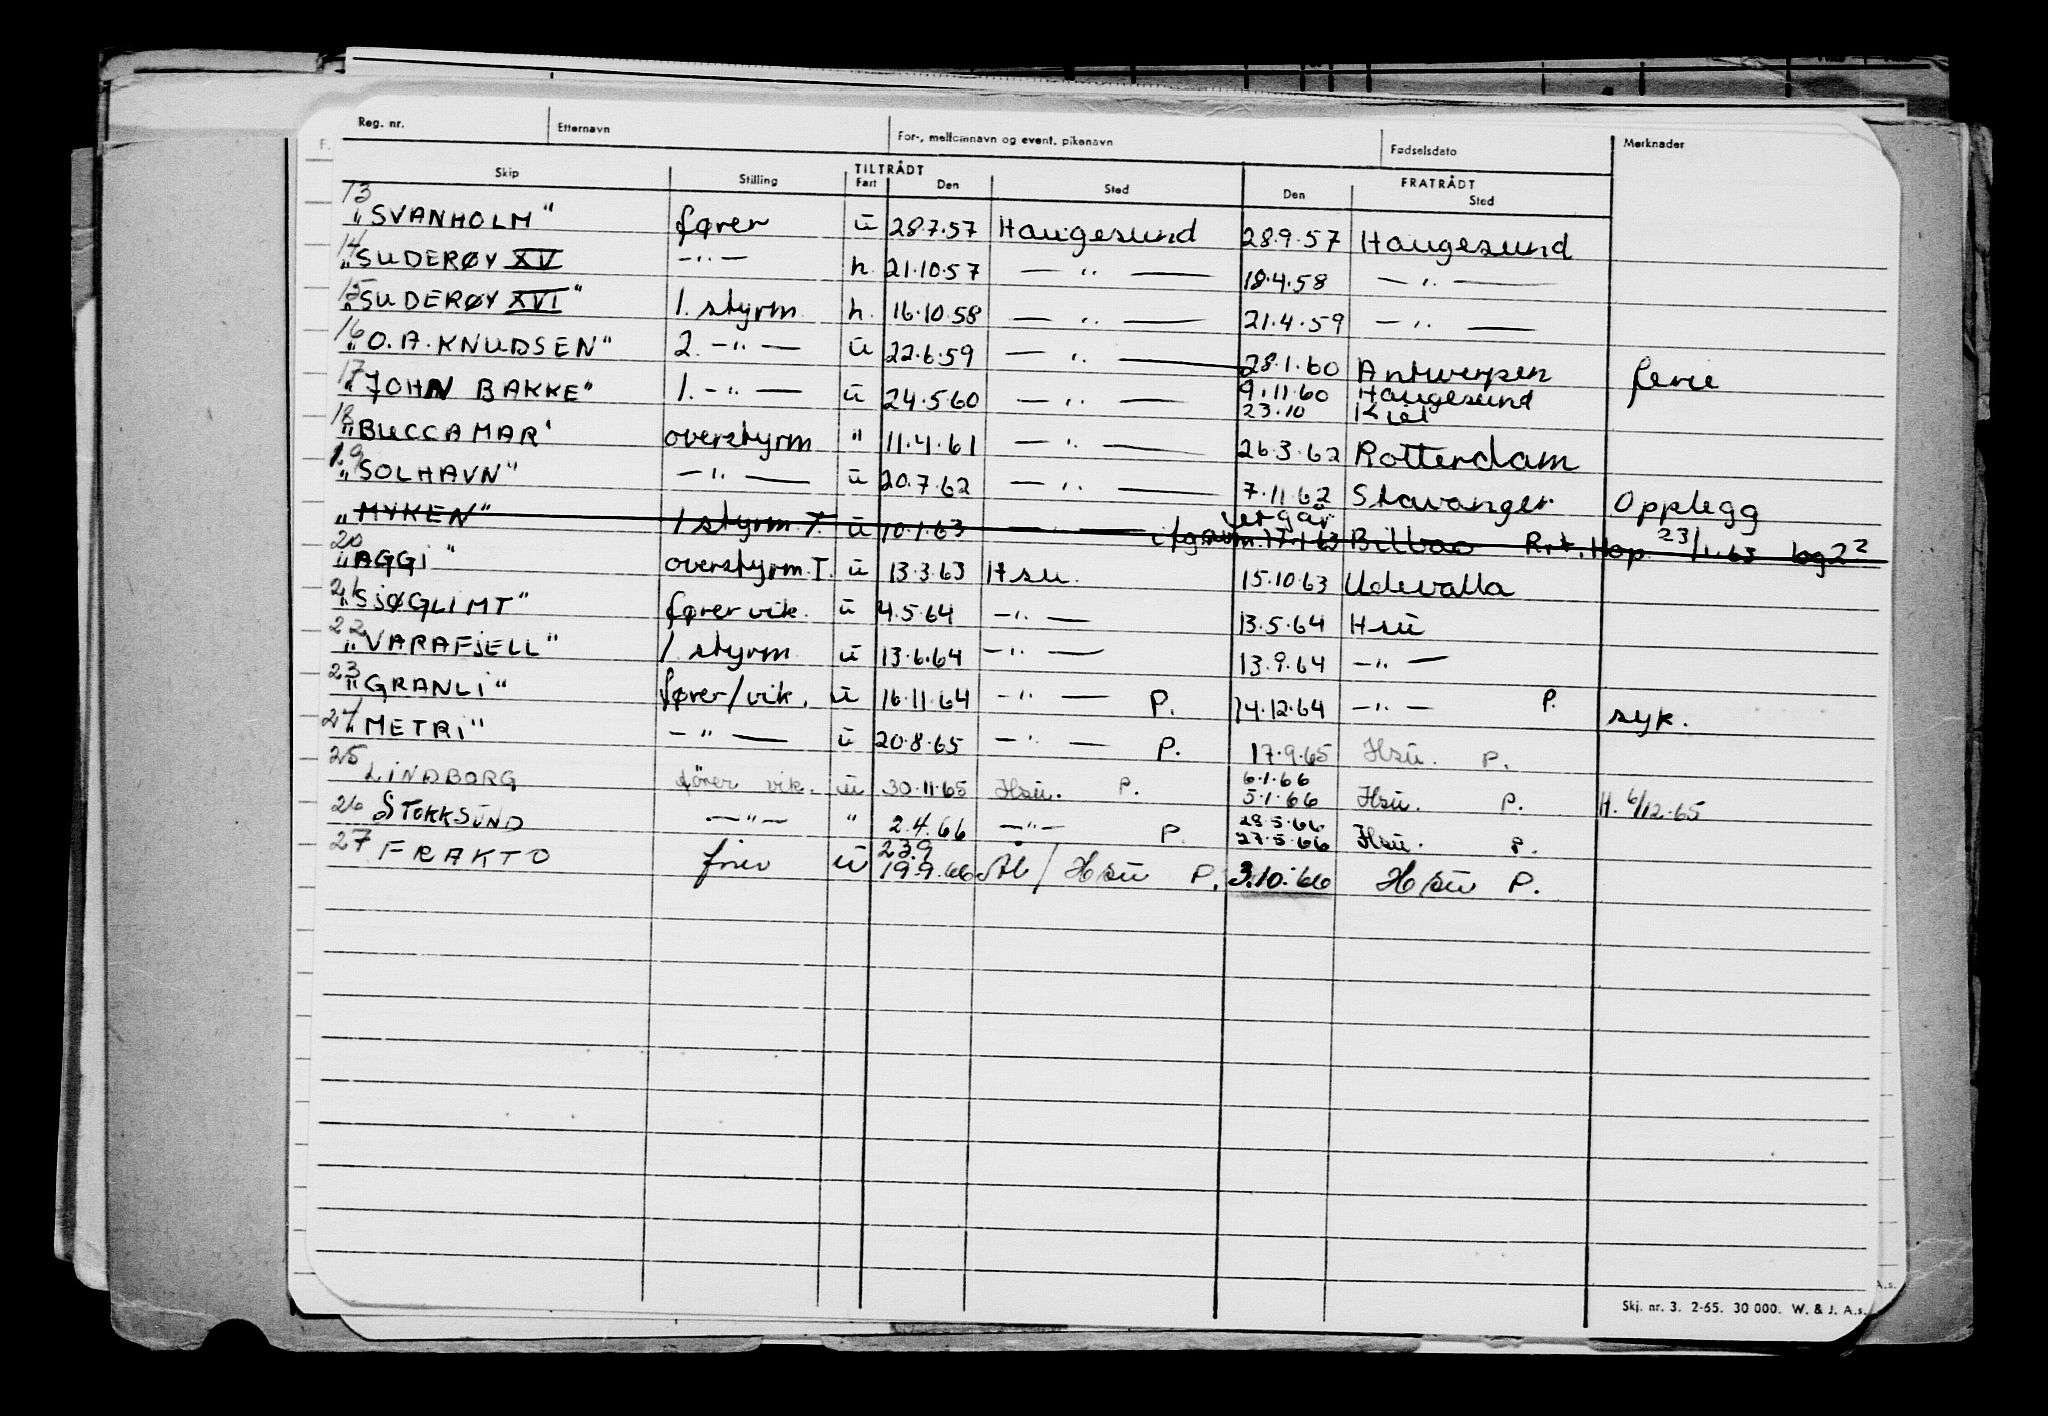 Reg. nr. Etternavn For-, mellomnavn og event. pikenavn Fødselsdato Merknader
TILTRÅDT FRATRÅDT
Skip Stilling Fart Den Sted Den Sted
13 "SVANHOLM" fører u 28.7.57 Haugesund 28.9.57 Haugesund
14 "SUDERØY XV —"— h. 21.10.57 —"— 18.4.58 —"—
15 "SUDERØY XVI" 1. styrm. h. 16.10.58 —"— 21.4.59 —"—
16 "O.A. KNUDSEN" 2. —"— u 22.6.59 —"— 28.1.60 Antwerpen ferie
17 "JOHN BAKKE" 1. —"— u 24.5.60 —"— 9.11.60 Haugesund
23.10 Kiel
18 "BUCCAMAR" overstyrm " 11.4.61 —"— 26.3.62 Rotterdam
19 "SOLHAVN" —"— u 20.7.62 —"— 7.11.62 Stavanger Opplegg
"MYKEN" 1 styrm. T. u 10.1.63 —"— 17.1.63 Bilbao 23/1.63
20 "AGGI" overstyrm. T. u 13.3.63 Hsu. 15.10.63 Udevalla
21 "SJØGLIMT" fører vik. u 4.5.64 —"— 13.5.64 Hsu
22 "VARAFJELL" 1 styrm u 13.6.64 —"— 13.9.64 —"—
23 "GRANLI" fører/vik. u 16.11.64 —"— P. 14.12.64 —"— P. syk.
24 "METRI" —"— u 20.8.65 —"— P. 17.9.65 Hsu. P.
25 LINDBORG fører vik. u 30.11.65 Hsu. P. 6.1.66
5.1.66 Hsu. P. H. 6/12.65
26 STOKKSUND —"— " 2.4.66 —"— P. 28.5.66
27.5.66 Hsu. P.
27 FRAKTO fører u 23.9
19.9.66 /Hsu P. 3.10.66 Hsu P.
Skj. nr. 3. 2-65. 30 000. W. & J. A.s.